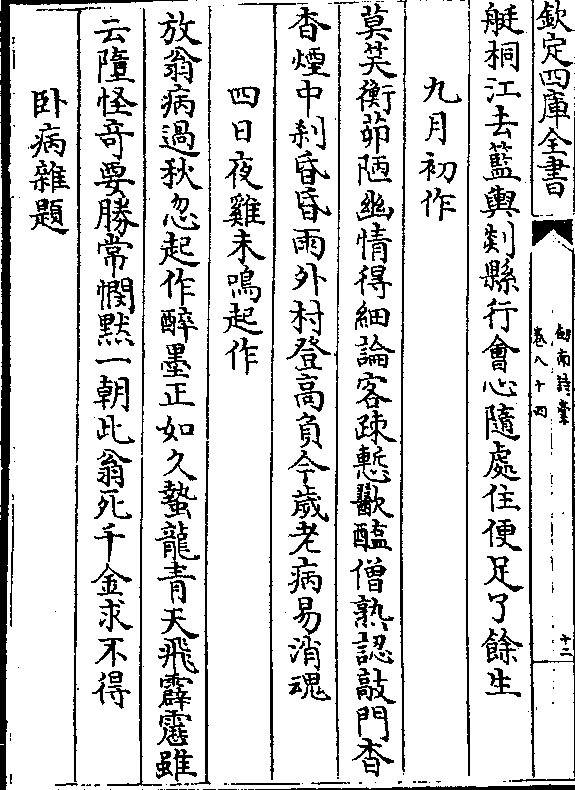 欽定四庫全書
劍南詩藁
卷八十四
十二
艇桐江去籃輿剡縣行會心隨處住便足了餘生
九月初作
莫笑衡茆陋幽情得細論客疎慙歠醢僧熟認敲門杳
杳煙中刹昏昏雨外村登高負今歲老病易消魂
四日夜雞未鳴起作
放翁病過秋忽起作醉墨正如久蟄龍青天飛霹靂雖
云墮怪奇要勝常憫默一朝此翁死千金求不得
卧病雜題